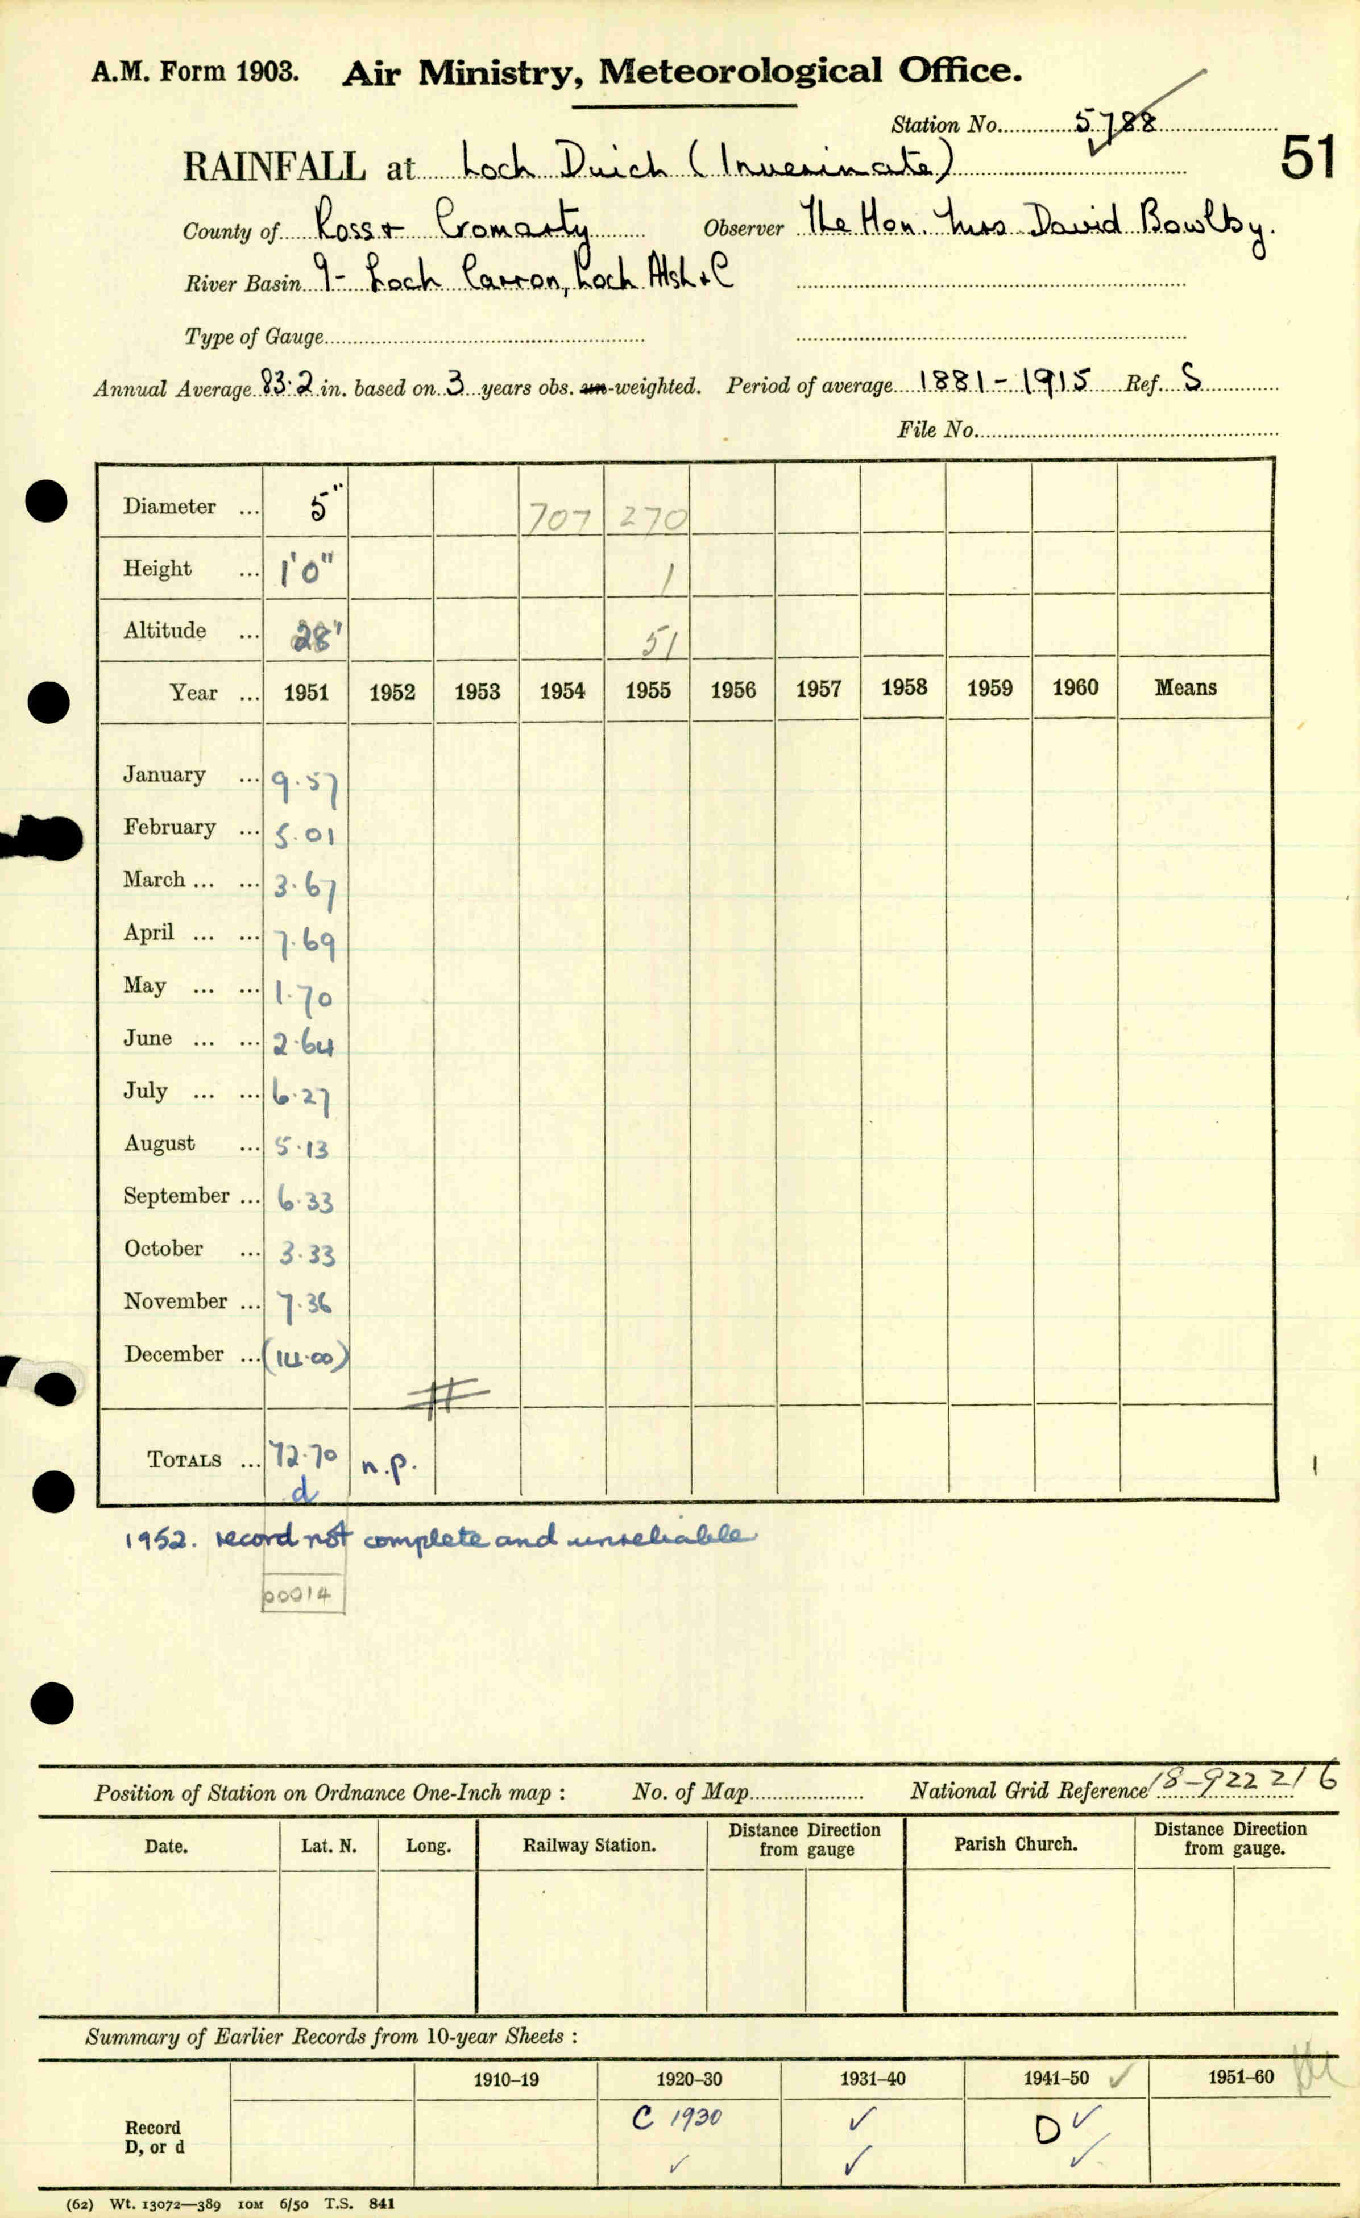 A.M. Form 1903. Air Ministry, Meteorological Office.
Station No. 5788
51
RAINFALL at Loch Duich (Inverinate)
County of Ross + Cromarty Observer The Hon. Mrs David Bowlby.
River Basin 9 - Loch Carron, Loch Alsh & C
Type of Gauge
Annual Average 83.2 in. based on 3 years obs. un-weighted. Period of average 1881-1915 Ref. S
File No.
Diameter ... 5" 707 270
Height ... 1'0" 1
Altitude ... 28' 51
Year ... 1951 1952 1953 1954 1955 1956 1957 1958 1959 1960 Means
January ... 9.57
February ... 5.01
March ... ... 3.67
April ... ... 7.69
May ... ... 1.70
June ... ... 2.64
July ... ... 6.27
August ... 5.13
September ... 6.33
October ... 3.33
November ... 7.36
December ... (14.00)
TOTALS ... 72.70 n.p.
d
1952. record not complete and unreliable
00014
Position of Station on Ordnance One-Inch map : No. of Map National Grid Reference 18-922 216
Date. Lat. N. Long. Railway Station. Distance Direction from gauge Parish Church. Distance Direction from gauge.
Summary of Earlier Records from 10-year Sheets :
1910–19 1920–30 1931–40 1941–50 ✓ 1951–60
Record C 1930 ✓ D ✓
D, or d ✓ ✓ ✓
(62) Wt. 13072—389 10M 6/50 T.S. 841